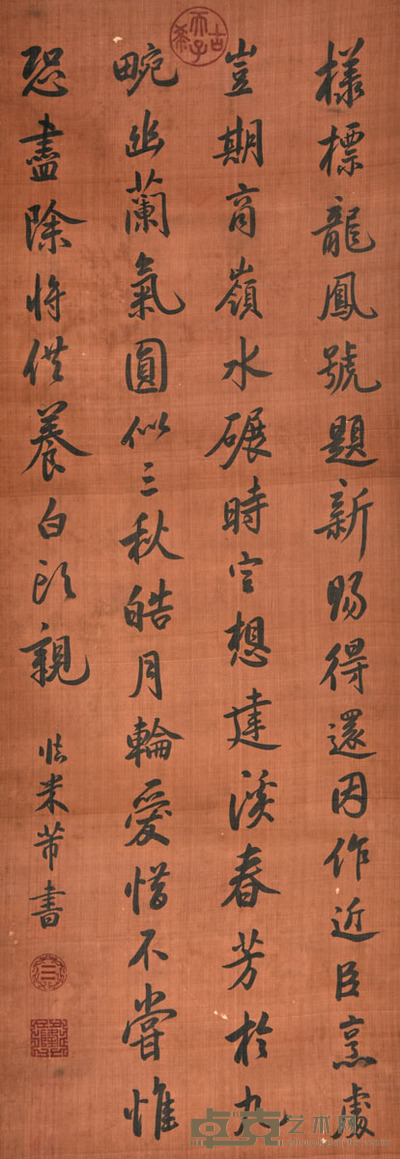 樣標龍鳳號題新賜得還因作近臣烹處
豈期商嶺水碾時空想建溪春芳於九
畹幽蘭氣圓似三秋皓月輪愛惜不嘗惟
恐盡除將供養白頭親
臨米芾書
古希天子
卓克艺术网